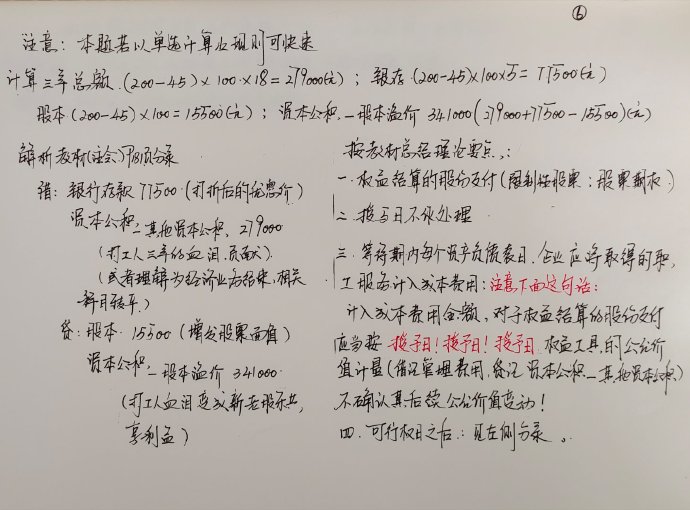 ⑥
注意：本题若以单选计算化规则可快速
计算三年总额.(200-45)×100×18=279000(元)；银存.(200-45)×100×5=77500(元)
股本(200-45)×100=15500(元)；资本公积.—股本溢价 341000(279000+77500-15500)(元)
解析教材(注会)P181页分录
借：银行存款 77500(打折后的优惠价)
资本公积—其他资本公积. 279000
(打工人三年的血泪.贡献)
(或者理解为经济业务结束，相关
科目转平.)
贷：股本. 15500(增发股票面值)
资本公积—股本溢价 341000.
(打工人血泪变成新老股东共,
享利益)
按教材总结理论要点.：
一.权益结算的股份支付(限制性股票；股票期权)
二.授予日不做处理
三.等待期内每个资产负债表日.企业应将取得的职,
工服务计入成本费用：注意下面这句话：
计入成本费用金额，对于权益结算的股份支付
应当按 授予日！授予日！授予日.权益工具的公允价
值计量(借记管理费用.贷记资本公积—其他资本公积)
不确认其后续公允价值变动！
四.可行权日之后.：见左侧分录。